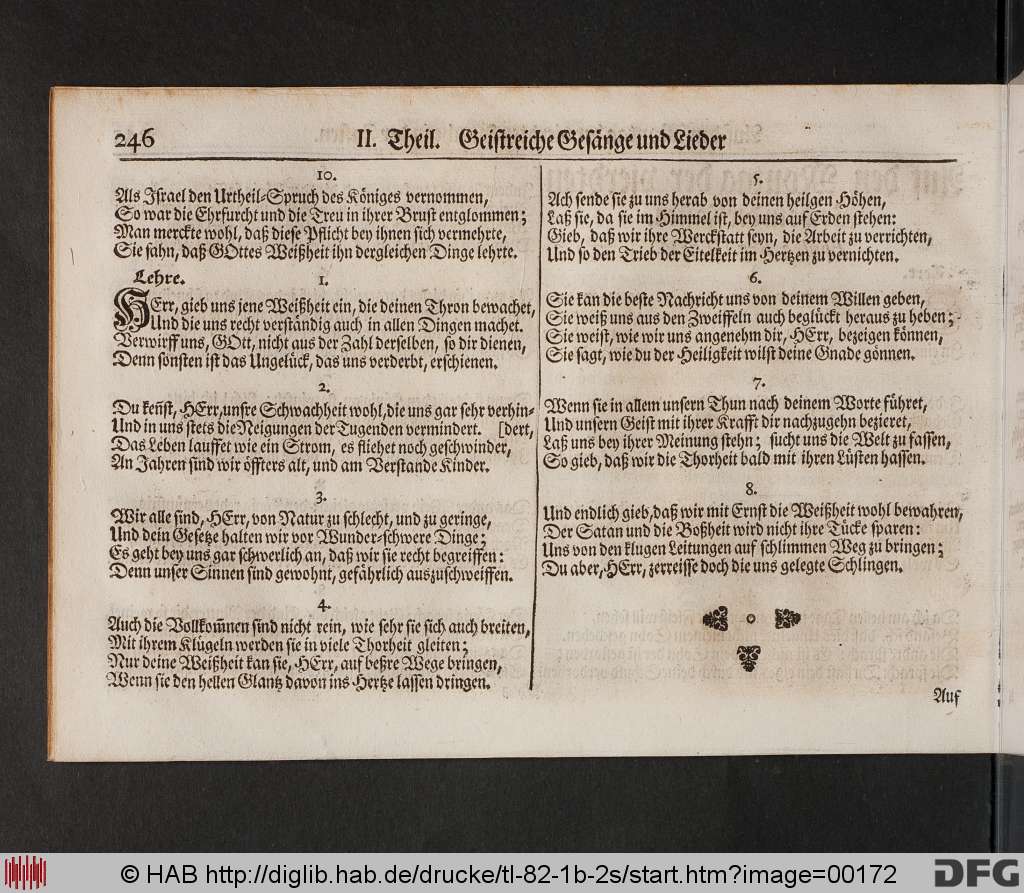 246
II. Theil. Geistreiche Gesänge und Lieder
10.
Als Israel den Urtheil-Spruch des Königes vernommen,
So war die Ehrfurcht und die Treu in ihrer Brust entglommen;
Man merckte wohl, daß diese Pflicht bey ihnen sich vermehrte,
Sie sahn, daß GOttes Weißheit ihn dergleichen Dinge lehrte.
Lehre. 1.
HErr, gieb uns jene Weißheit ein, die deinen Thron bewachet,
Und die uns recht verständig auch in allen Dingen machet.
Verwirff uns, GOtt, nicht aus der Zahl derselben, so dir dienen,
Denn sonsten ist das Ungelück, das uns verderbt, erschienen.
2.
Du keñst, HErr, unsre Schwachheit wohl, die uns gar sehr verhin-
Und in uns stets die Neigungen der Tugenden vermindert. [dert,
Das Leben lauffet wie ein Strom, es fliehet noch geschwinder,
An Jahren sind wir öffters alt, und am Verstande Kinder.
3.
Wir alle sind, HErr, von Natur zu schlecht, und zu geringe,
Und dein Gesetze halten wir vor Wunder-schwere Dinge;
Es geht bey uns gar schwerlich an, daß wir sie recht begreiffen:
Denn unser Sinnen sind gewohnt, gefährlich auszuschweiffen.
4.
Auch die Vollkom̃nen sind nicht rein, wie sehr sie sich auch breiten,
Mit ihrem Klügeln werden sie in viele Thorheit gleiten;
Nur deine Weißheit kan sie, HErr, auf beßre Wege bringen,
Wenn sie den hellen Glantz davon ins Hertze lassen dringen.
5.
Ach sende sie zu uns herab von deinen heilgen Höhen,
Laß sie, da sie im Himmel ist, bey uns auf Erden stehen:
Gieb, daß wir ihre Werckstatt seyn, die Arbeit zu verrichten,
Und so den Trieb der Eitelkeit im Hertzen zu vernichten.
6.
Sie kan die beste Nachricht uns von deinem Willen geben,
Sie weiß uns aus den Zweiffeln auch beglückt heraus zu heben;
Sie weist, wie wir uns angenehm dir, HErr, bezeigen können,
Sie sagt, wie du der Heiligkeit wilst deine Gnade gönnen.
7.
Wenn sie in allem unsern Thun nach deinem Worte führet,
Und unsern Geist mit ihrer Krafft dir nachzugehn bezieret,
Laß uns bey ihrer Meinung stehn; sucht uns die Welt zu fassen,
So gieb, daß wir die Thorheit bald mit ihren Lüsten hassen.
8.
Und endlich gieb, daß wir mit Ernst die Weißheit wohl bewahren,
Der Satan und die Boßheit wird nicht ihre Tücke sparen:
Uns von den klugen Leitungen auf schlimmen Weg zu bringen;
Du aber, HErr, zerreisse doch die uns gelegte Schlingen.
Auf
© HAB http://diglib.hab.de/drucke/tl-82-1b-2s/start.htm?image=00172
DFG